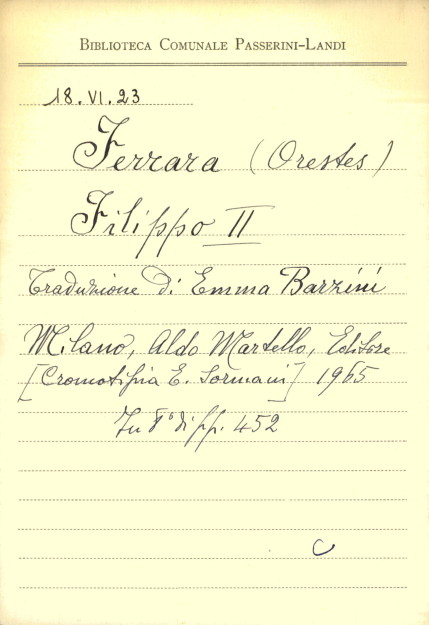 BIBLIOTECA COMUNALE PASSERINI-LANDI
18.VI.23
Ferrara (Orestes)
Filippo II
Traduzione di Emma Barzini
Milano, Aldo Martello, Editore
[Cromotipia E. Sormani] 1965
In 8° di pp. 452
C